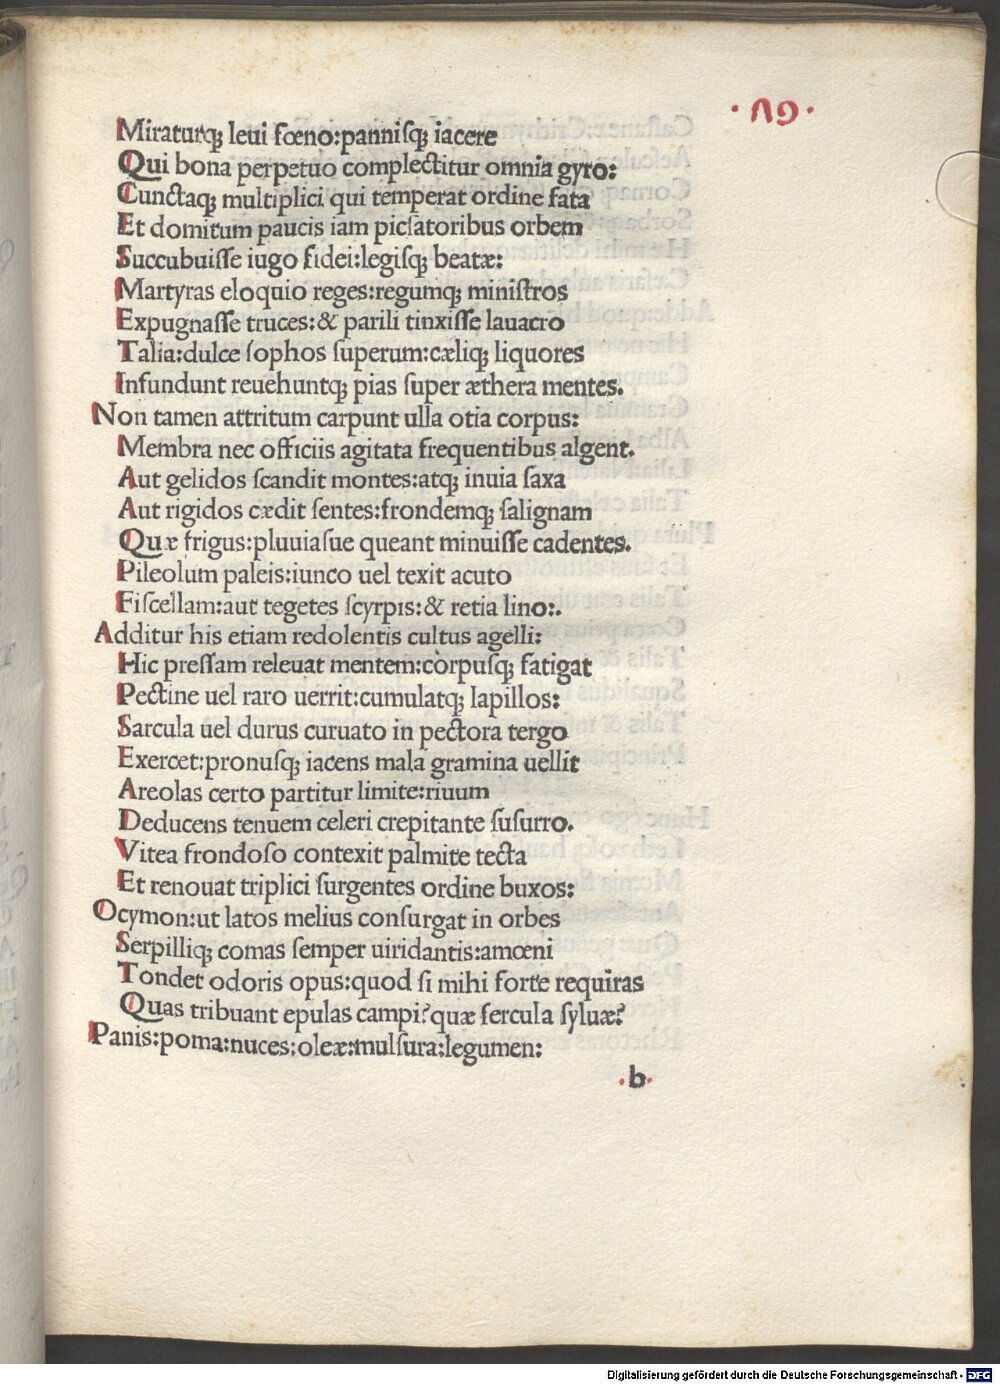 ·Λ9·
Miraturqꝫ leui fœno:panniſqꝫ iacere
Qui bona perpetuo complectitur omnia gyro:
Cunctaqꝫ multiplici qui temperat ordine fata
Et domitum paucis iam piſcatoribus orbem
Succubuiſſe iugo fidei:legiſqꝫ beatæ:
Martyras eloquio reges:regumqꝫ miniſtros
Expugnaſſe truces:& parili tinxiſſe lauacro
Talia:dulce ſophos ſuperum:cæliqꝫ liquores
Infundunt reuehuntqꝫ pias ſuper æthera mentes.
Non tamen attritum carpunt ulla otia corpus:
Membra nec officiis agitata frequentibus algent.
Aut gelidos ſcandit montes:atqꝫ inuia ſaxa
Aut rigidos cædit ſentes:frondemqꝫ ſalignam
Quæ frigus:pluuiaſue queant minuiſſe cadentes.
Pileolum paleis:iunco uel texit acuto
Fiſcellam:aut tegetes ſcyrpis:& retia lino:.
Additur his etiam redolentis cultus agelli:
Hic preſſam releuat mentem:corpuſqꝫ fatigat
Pectine uel raro uerrit:cumulatqꝫ lapillos:
Sarcula uel durus curuato in pectora tergo
Exercet:pronuſqꝫ iacens mala gramina uellit
Areolas certo partitur limite:riuum
Deducens tenuem celeri crepitante ſuſurro.
Vitea frondoſo contexit palmite tecta
Et renouat triplici ſurgentes ordine buxos:
Ocymon:ut latos melius conſurgat in orbes
Serpilliqꝫ comas ſemper uiridantis:amœni
Tondet odoris opus:quod ſi mihi forte requiras
Quas tribuant epulas campi?quæ fercula ſyluæ?
Panis:poma:nuces:oleæ:mulſura:legumen:
·b·
Digitalisierung gefördert durch die Deutsche Forschungsgemeinschaft - DFG